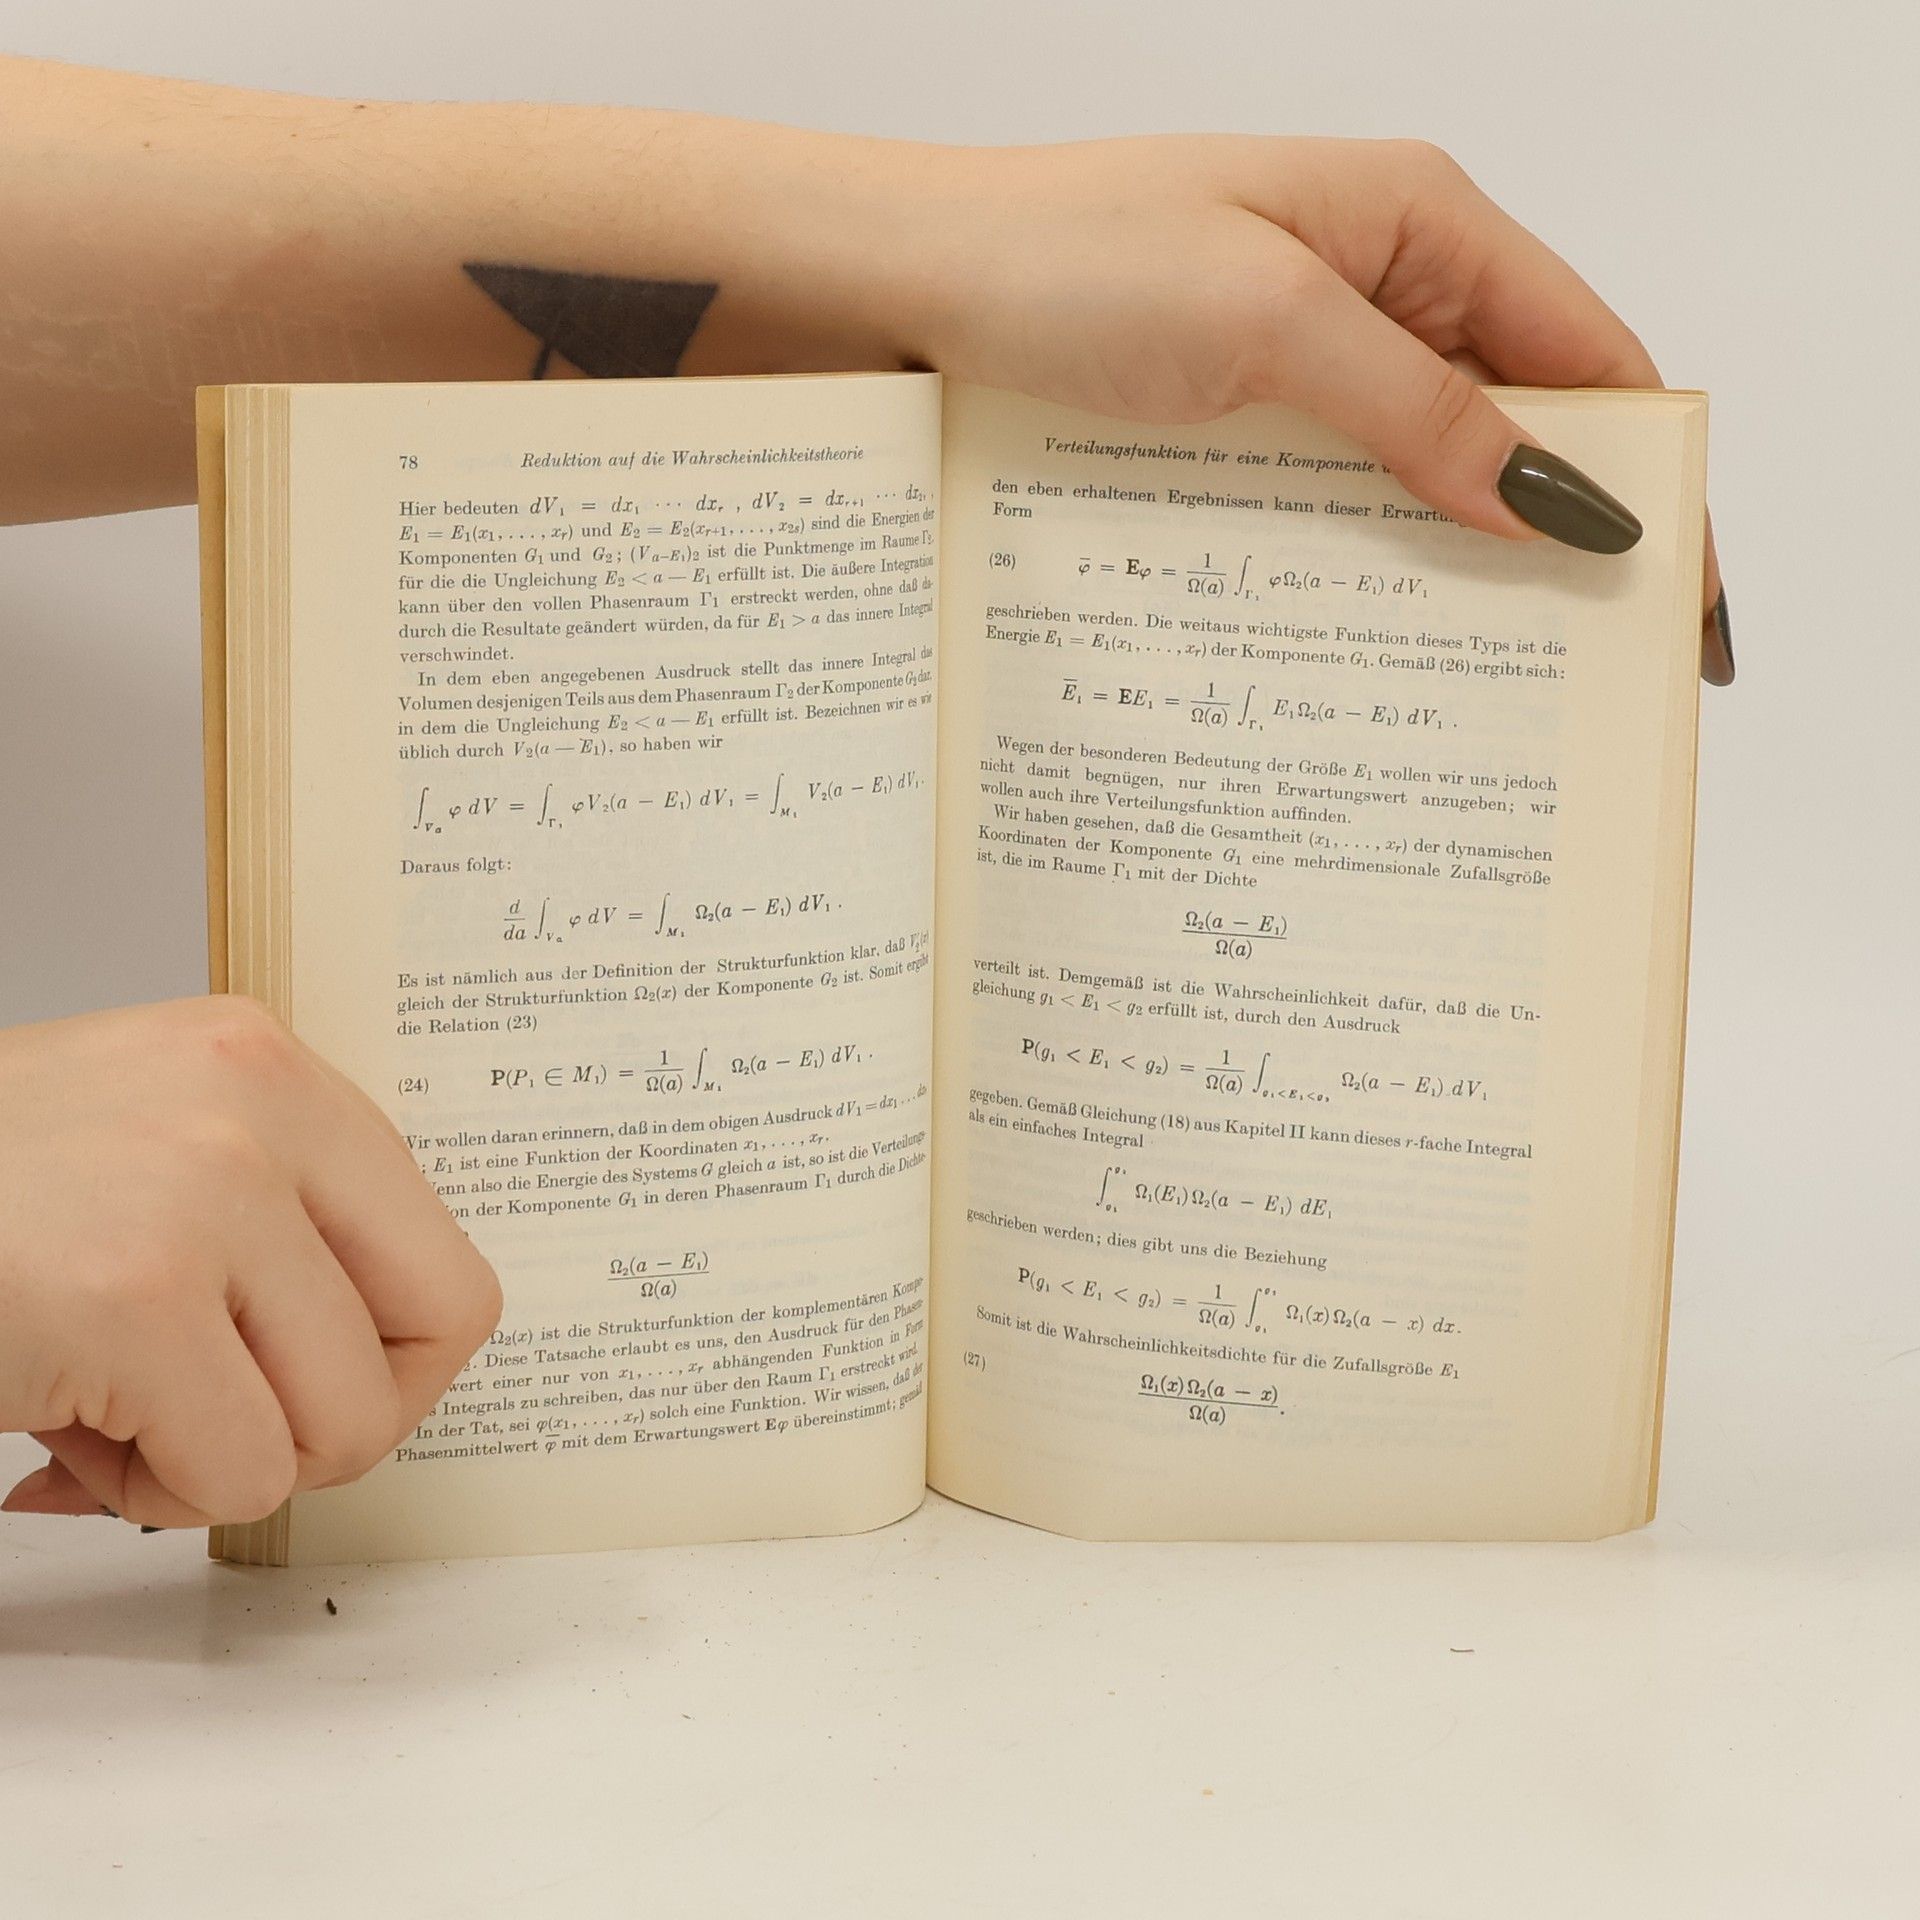 78 Reduktion auf die Wahrscheinlichkeitstheorie
Hier bedeuten dV₁ = dx₁ ··· dxᵣ , dV₂ = dxᵣ₊₁ ···
E₁ = E₁(x₁, . . . , xᵣ) und E₂ = E₂(xᵣ₊₁, . . . , x₂ₛ) sind die Energien der
Komponenten G₁ und G₂; (V_{a−E₁})₂ ist die Punktmenge im Raume Γ₂,
für die die Ungleichung E₂ < a — E₁ erfüllt ist. Die äußere Integration
kann über den vollen Phasenraum Γ₁ erstreckt werden, ohne daß da-
durch die Resultate geändert würden, da für E₁ > a das innere Integral
verschwindet.
In dem eben angegebenen Ausdruck stellt das innere Integral das
Volumen desjenigen Teils aus dem Phasenraum Γ₂ der Komponente G₂ dar,
in dem die Ungleichung E₂ < a — E₁ erfüllt ist. Bezeichnen wir es wie
üblich durch V₂(a — E₁), so haben wir
∫_{V_a} φ dV = ∫_{Γ₁} φV₂(a − E₁) dV₁ = ∫_{M₁} V₂(a − E₁) dV₁.
Daraus folgt:
d/da ∫_{V_a} φ dV = ∫_{M₁} Ω₂(a − E₁) dV₁ .
Es ist nämlich aus der Definition der Strukturfunktion klar, daß V₂′(x)
gleich der Strukturfunktion Ω₂(x) der Komponente G₂ ist. Somit ergibt
die Relation (23)
(24) P(P₁ ∈ M₁) = 1/Ω(a) ∫_{M₁} Ω₂(a − E₁) dV₁ .
Wir wollen daran erinnern, daß in dem obigen Ausdruck dV₁ = dx₁ . . .
; E₁ ist eine Funktion der Koordinaten x₁, . . . , xᵣ.
Wenn also die Energie des Systems G gleich a ist, so ist die Verteilungs-
der Komponente G₁ in deren Phasenraum Γ₁ durch die Dichte
Ω₂(a − E₁)/Ω(a)
Ω₂(x) ist die Strukturfunktion der komplementären Kompo-
Diese Tatsache erlaubt es uns, den Ausdruck für den Phasen-
wert einer nur von x₁, . . . , xᵣ abhängenden Funktion in Form
Integrals zu schreiben, das nur über den Raum Γ₁ erstreckt wird.
In der Tat, sei φ(x₁, . . . , xᵣ) solch eine Funktion. Wir wissen, daß der
Phasenmittelwert φ̅ mit dem Erwartungswert Eφ übereinstimmt; gemäß
Verteilungsfunktion für eine Komponente
den eben erhaltenen Ergebnissen kann dieser
Form
(26) φ̅ = Eφ = 1/Ω(a) ∫_{Γ₁} φΩ₂(a − E₁) dV₁
geschrieben werden. Die weitaus wichtigste Funktion dieses Typs ist die
Energie E₁ = E₁(x₁, . . . , xᵣ) der Komponente G₁. Gemäß (26) ergibt sich:
E̅₁ = EE₁ = 1/Ω(a) ∫_{Γ₁} E₁Ω₂(a − E₁) dV₁ .
Wegen der besonderen Bedeutung der Größe E₁ wollen wir uns jedoch
nicht damit begnügen, nur ihren Erwartungswert anzugeben; wir
wollen auch ihre Verteilungsfunktion auffinden.
Wir haben gesehen, daß die Gesamtheit (x₁, . . . , xᵣ) der dynamischen
Koordinaten der Komponente G₁ eine mehrdimensionale Zufallsgröße
ist, die im Raume Γ₁ mit der Dichte
Ω₂(a − E₁)/Ω(a)
verteilt ist. Demgemäß ist die Wahrscheinlichkeit dafür, daß die Un-
gleichung g₁ < E₁ < g₂ erfüllt ist, durch den Ausdruck
P(g₁ < E₁ < g₂) = 1/Ω(a) ∫_{g₁<E₁<g₂} Ω₂(a − E₁) dV₁
gegeben. Gemäß Gleichung (18) aus Kapitel II kann dieses r-fache Integral
als ein einfaches Integral
∫_{g₁}^{g₂} Ω₁(E₁)Ω₂(a − E₁) dE₁
geschrieben werden; dies gibt uns die Beziehung
P(g₁ < E₁ < g₂) = 1/Ω(a) ∫_{g₁}^{g₂} Ω₁(x)Ω₂(a − x) dx.
Somit ist die Wahrscheinlichkeitsdichte für die Zufallsgröße E₁
(27) Ω₁(x)Ω₂(a − x)/Ω(a).